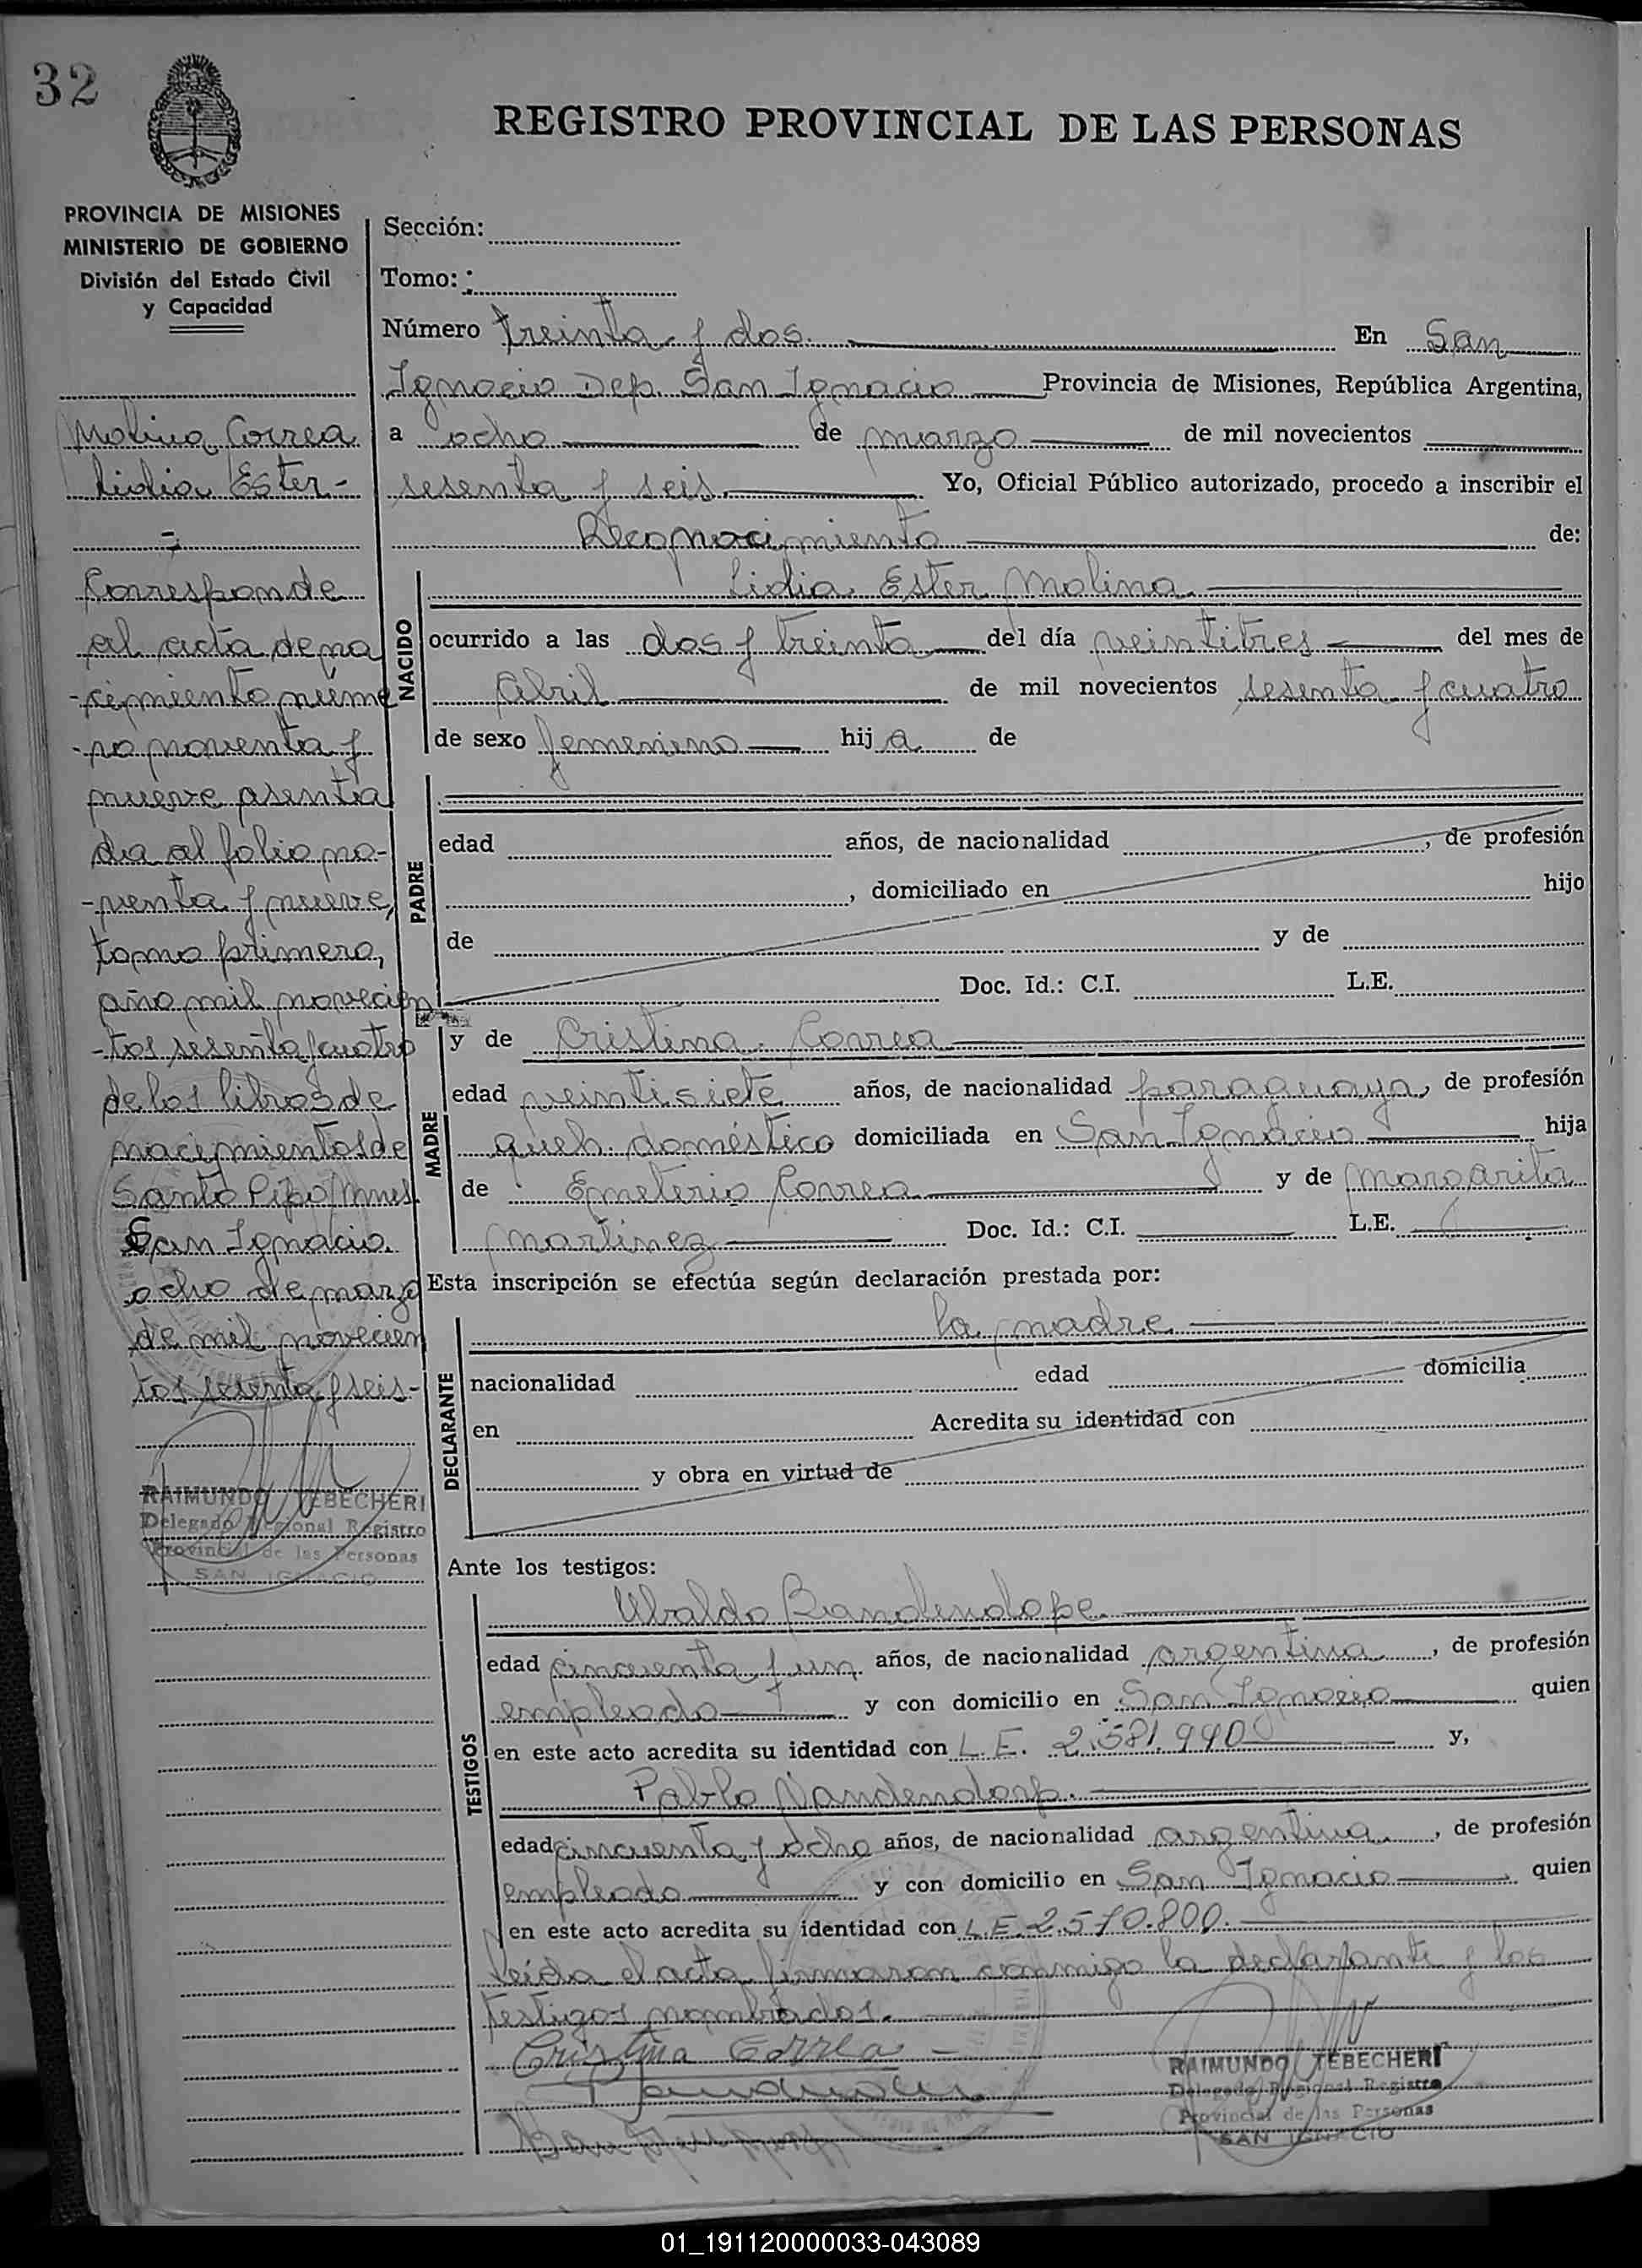 32
REGISTRO PROVINCIAL DE LAS PERSONAS
PROVINCIA DE MISIONES
MINISTERIO DE GOBIERNO
División del Estado Civil
y Capacidad
Molina Correa
Lidia Ester -
Corresponde
al acta de na
-cimiento núme
-ro noventa y
nueve asenta
da al folio no-
-venta y nueve,
tomo primero,
año mil novecien
-tos sesenta y cuatro
de los libros de
nacimientos de
Santo Pipo Mnes.
San Ignacio.
ocho de marzo
de mil novecien
tos sesenta y seis-
RAIMUNDO TEBECHERI
Delegado Regional Registro
Provincial de las Personas
SAN IGNACIO
Sección:
Tomo:
Número treinta y dos. En San
Ignacio Dep. San Ignacio Provincia de Misiones, República Argentina,
a ocho de marzo de mil novecientos
sesenta y seis Yo, Oficial Público autorizado, procedo a inscribir el
Reconocimiento de:
NACIDO
Lidia Ester Molina
ocurrido a las dos y treinta del día veintitres del mes de
Abril de mil novecientos sesenta y cuatro
de sexo femenino hij a de
PADRE
edad años, de nacionalidad , de profesión
, domiciliado en hijo
de y de
Doc. Id.: C.I. L.E.
MADRE
y de Cristina Correa
edad veintisiete años, de nacionalidad paraguaya, de profesión
queh. doméstico domiciliada en San Ignacio hija
de Emeterio Correa y de Margarita
Martinez Doc. Id.: C.I. L.E.
Esta inscripción se efectúa según declaración prestada por:
DECLARANTE
la madre
nacionalidad edad domicilia
en Acredita su identidad con
y obra en virtud de
Ante los testigos:
TESTIGOS
Ubaldo Bandendope.
edad cincuenta y un años, de nacionalidad argentina, de profesión
empleado y con domicilio en San Ignacio quien
en este acto acredita su identidad con L.E. 2.581.940 y,
Pablo Vandendorp.
edad cincuenta y ocho años, de nacionalidad argentina, de profesión
empleado y con domicilio en San Ignacio quien
en este acto acredita su identidad con L.E. 2.570.800.
Leída el acta firmaron conmigo la declarante y los
testigos nombrados.
Cristina Correa -
RAIMUNDO TEBECHERI
Delegado Regional Registro
Provincial de las Personas
SAN IGNACIO
01_191120000033-043089